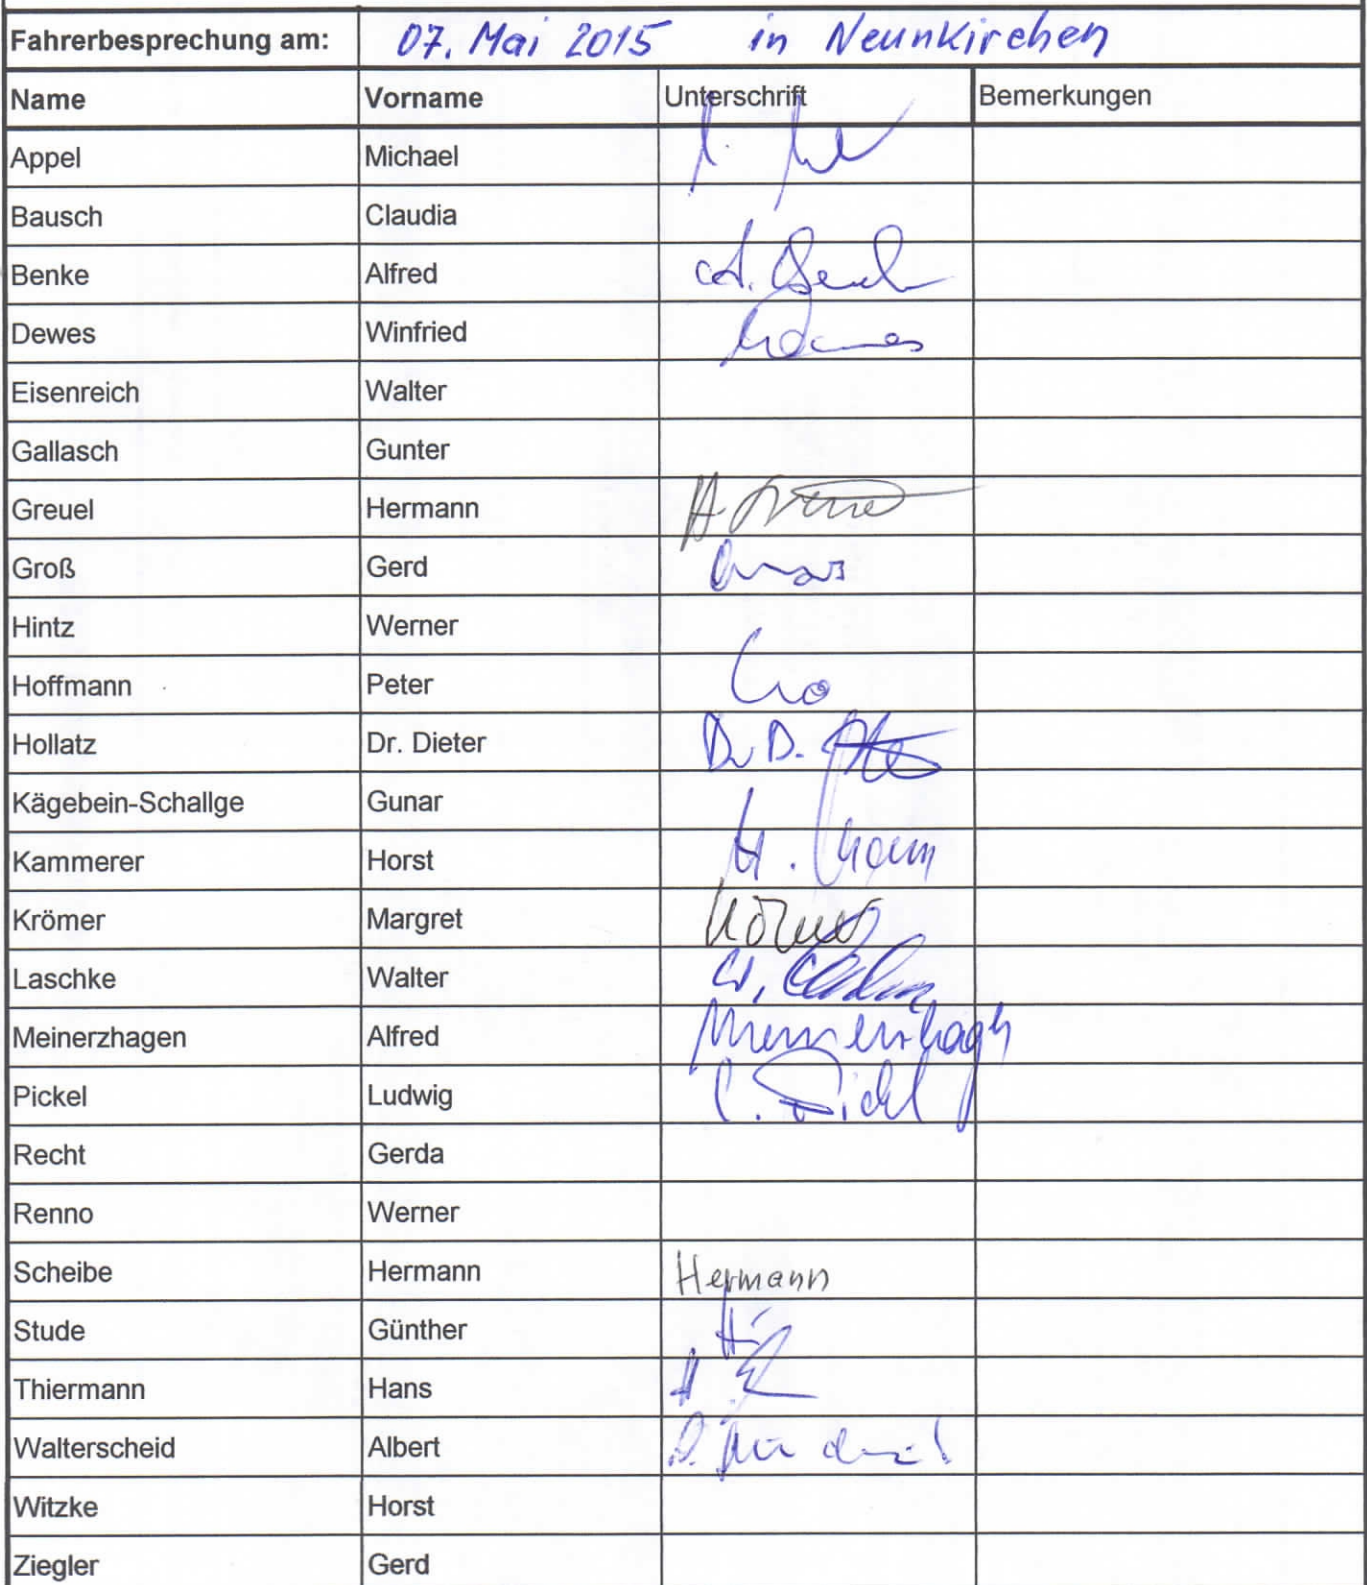 Fahrerbesprechung am: 07. Mai 2015 in Neunkirchen
Name Vorname Unterschrift Bemerkungen
Appel Michael
Bausch Claudia
Benke Alfred
Dewes Winfried
Eisenreich Walter
Gallasch Gunter
Greuel Hermann
Groß Gerd
Hintz Werner
Hoffmann Peter
Hollatz Dr. Dieter
Kägebein-Schallge Gunar
Kammerer Horst
Krömer Margret
Laschke Walter
Meinerzhagen Alfred
Pickel Ludwig
Recht Gerda
Renno Werner
Scheibe Hermann Hermann
Stude Günther
Thiermann Hans
Walterscheid Albert
Witzke Horst
Ziegler Gerd